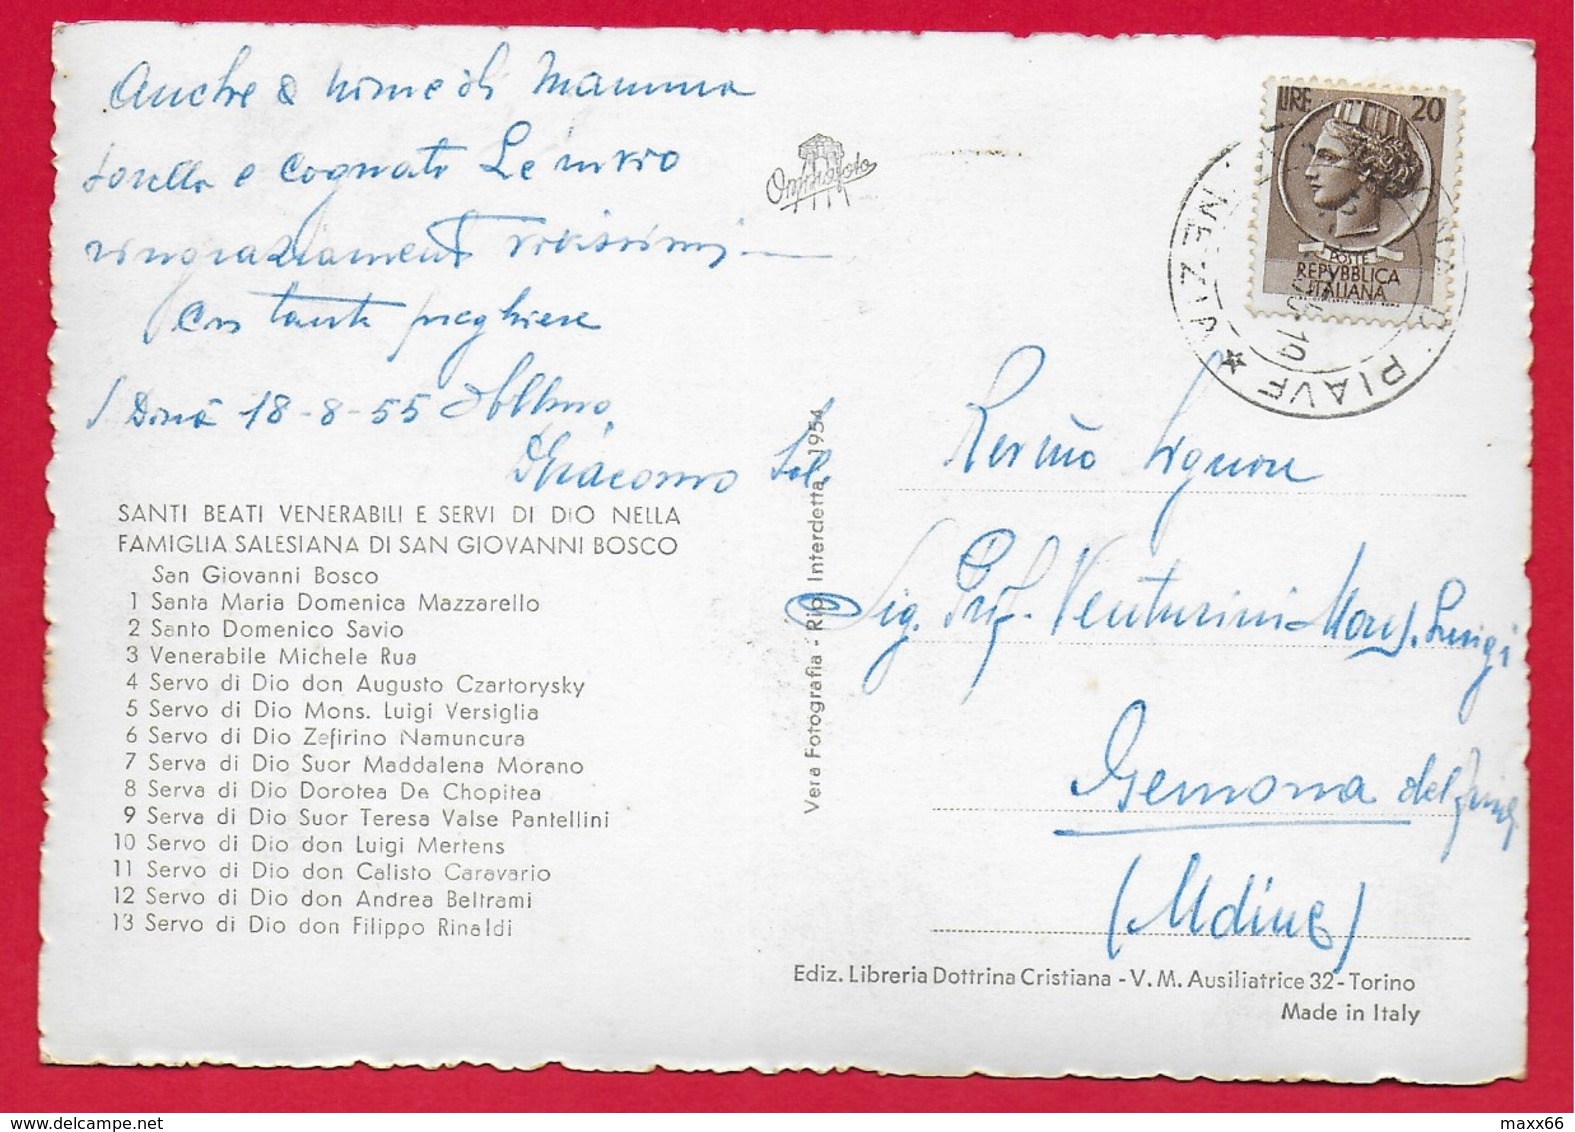 Anche a nome di Mamma
sorella e cognato Le invio
ringraziamenti vivissimi
Con tante preghiere
S Donà 18-8-55
Giacomo Sal.
SANTI BEATI VENERABILI E SERVI DI DIO NELLA
FAMIGLIA SALESIANA DI SAN GIOVANNI BOSCO
San Giovanni Bosco
1 Santa Maria Domenica Mazzarello
2 Santo Domenico Savio
3 Venerabile Michele Rua
4 Servo di Dio don Augusto Czartorysky
5 Servo di Dio Mons. Luigi Versiglia
6 Servo di Dio Zefirino Namuncura
7 Serva di Dio Suor Maddalena Morano
8 Serva di Dio Dorotea De Chopitea
9 Serva di Dio Suor Teresa Valse Pantellini
10 Servo di Dio don Luigi Mertens
11 Servo di Dio don Calisto Caravario
12 Servo di Dio don Andrea Beltrami
13 Servo di Dio don Filippo Rinaldi
Vera Fotografia - Rip. Interdetta 1954
LIRE 20
POSTE
REPVBBLICA
ITALIANA
PIAVE ★ VENEZIA
Rev.mo Signor
Sig. Prof. Venturini Mons. Luigi
Gemona del Friuli
(Udine)
Ediz. Libreria Dottrina Cristiana - V. M. Ausiliatrice 32 - Torino
Made in Italy
www.delcampe.net
maxx66